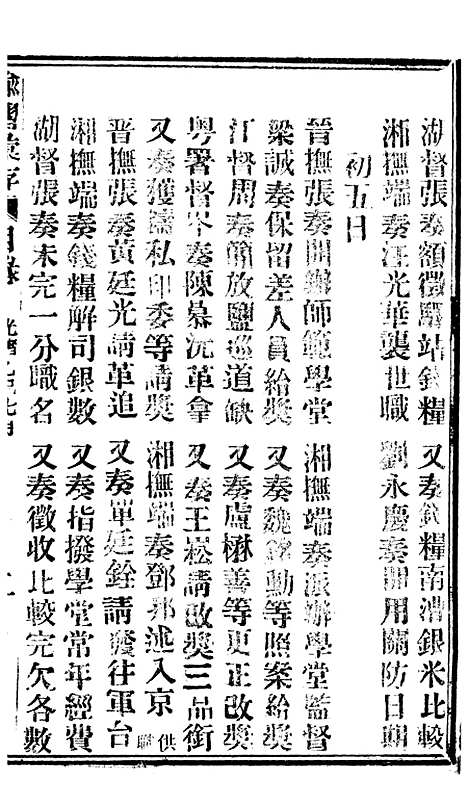 湖督張奏額徵驛站錢糧　又奏錢糧南漕銀米比較
湘撫端奏汪光華襲世職　劉永慶奏開用關防日期
初五日
晉撫張奏開辦師範學堂　湘撫端奏派辦學堂監督
梁誠奏保留差人員給獎　又奏魏 勳等照案給獎
江督周奏簡放鹽巡道缺　又奏盧楙善等更正改獎
粤署督岑奏陳慕沅革拿　又奏王崧請改獎三品銜
又奏獲譸私印委等請獎　湘撫端奏鄧邦述入京供職
晉撫張奏黃廷光請革追　又奏單廷銓請發往軍台
湘撫端奏錢糧解司銀數　又奏指撥學堂常年經費
湖督張奏未完一分職名　又奏徵收比較完欠各數
諭摺彙存　目錄　光緒 月